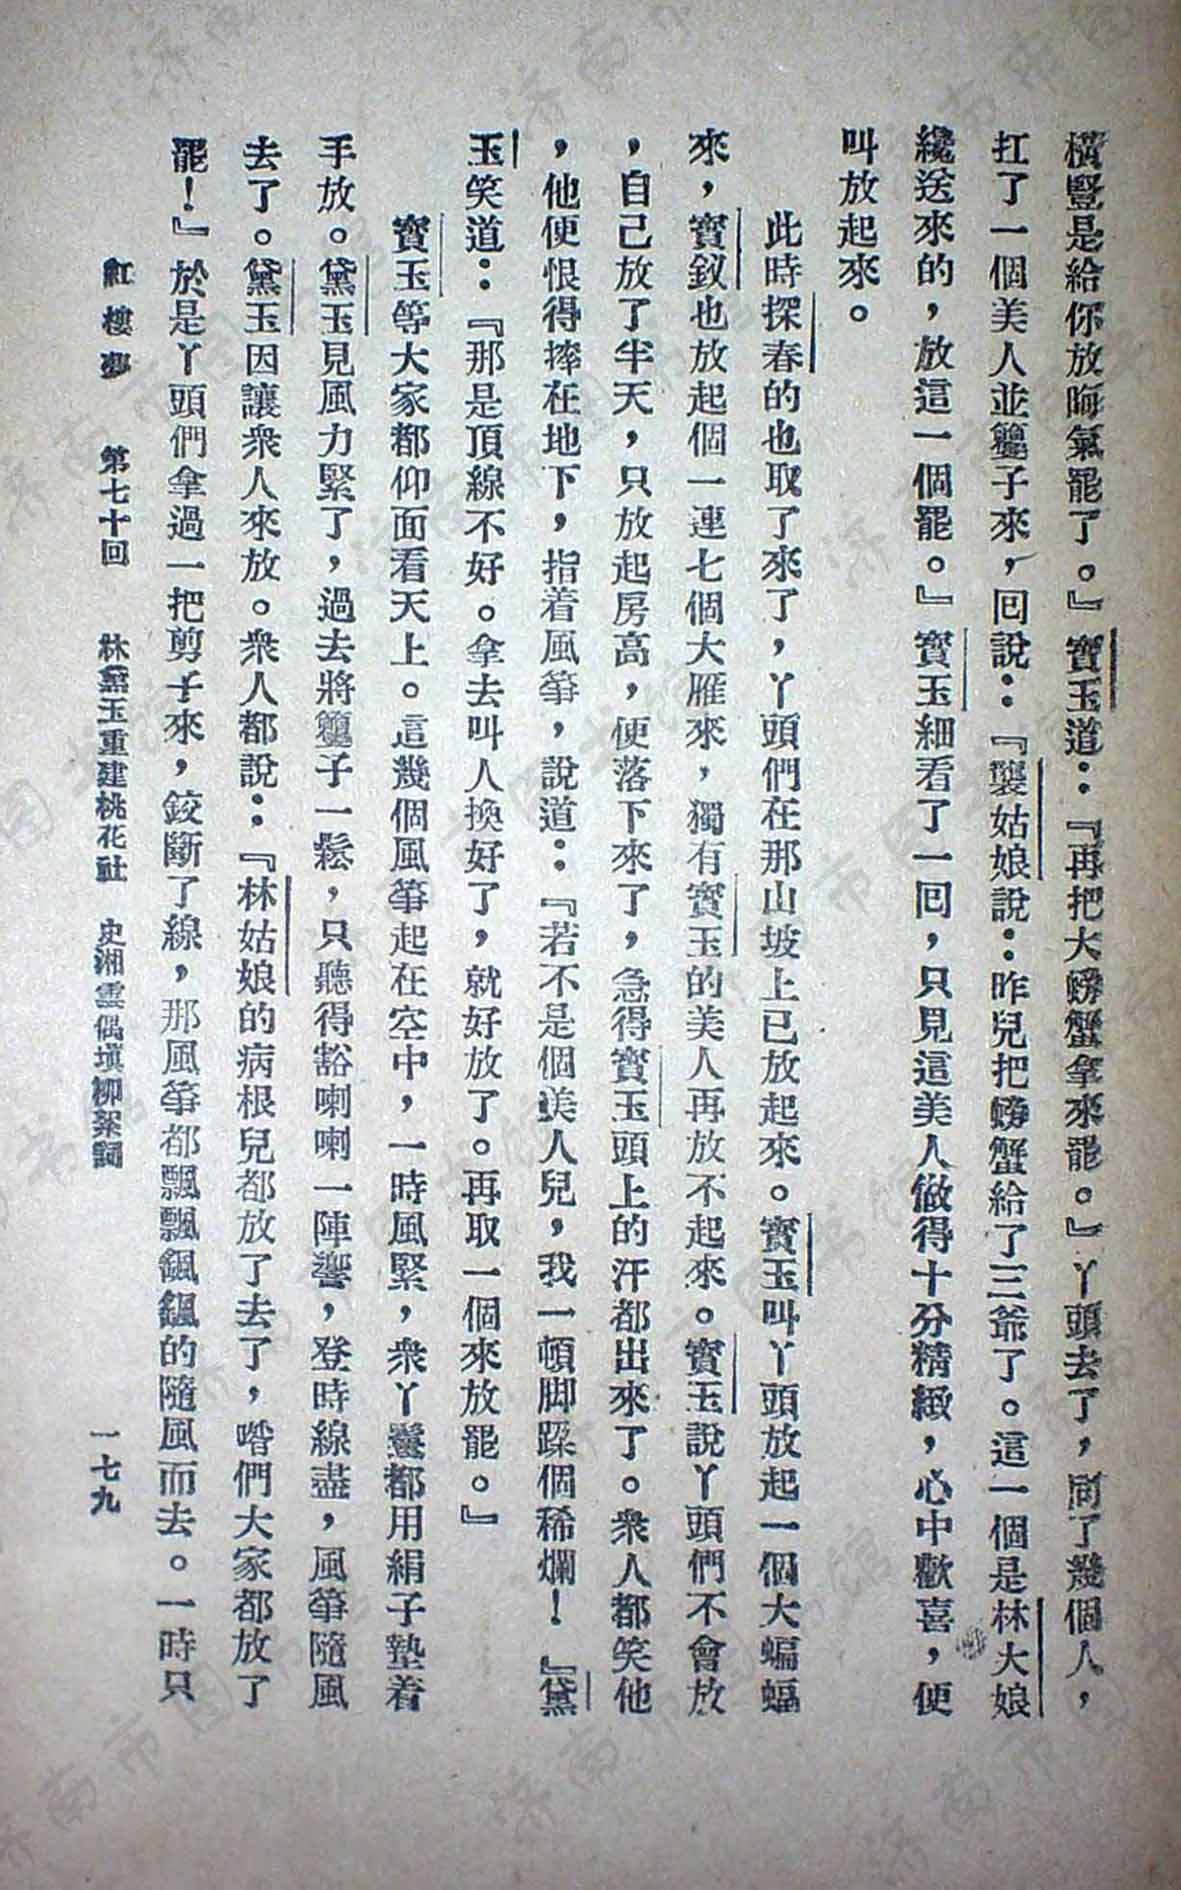 橫豎是給你放晦氣罷了。』寶玉道：『再把大螃蟹拿來罷。』丫頭去了，同了幾個人，
扛了一個美人並籰子來，回說：『襲姑娘說：昨兒把螃蟹給了三爺了。這一個是林大娘
纔送來的，放這一個罷。』寶玉細看了一回，只見這美人做得十分精緻，心中歡喜，便
叫放起來。
此時探春的也取了來了，丫頭們在那山坡上已放起來。寶玉叫丫頭放起一個大蝙蝠
來，寶釵也放起個一連七個大雁來，獨有寶玉的美人再放不起來。寶玉說丫頭們不會放
，自己放了半天，只放起房高，便落下來了，急得寶玉頭上的汗都出來了。衆人都笑他
，他便恨得摔在地下，指着風箏，說道：『若不是個美人兒，我一頓脚跺個稀爛！』黛
玉笑道：『那是頂線不好。拿去叫人換好了，就好放了。再取一個來放罷。』
寶玉等大家都仰面看天上。這幾個風箏起在空中，一時風緊，衆丫鬟都用絹子墊着
手放。黛玉見風力緊了，過去將籰子一鬆，只聽得豁喇喇一陣響，登時線盡，風箏隨風
去了。黛玉因讓衆人來放。衆人都說：『林姑娘的病根兒都放了去了，喒們大家都放了
罷！』於是丫頭們拿過一把剪子來，鉸斷了線，那風箏都飄飄颻颻的隨風而去。一時只
紅樓夢 第七十回 林黛玉重建桃花社 史湘雲偶塡柳絮詞 一七九
濟南市图书馆